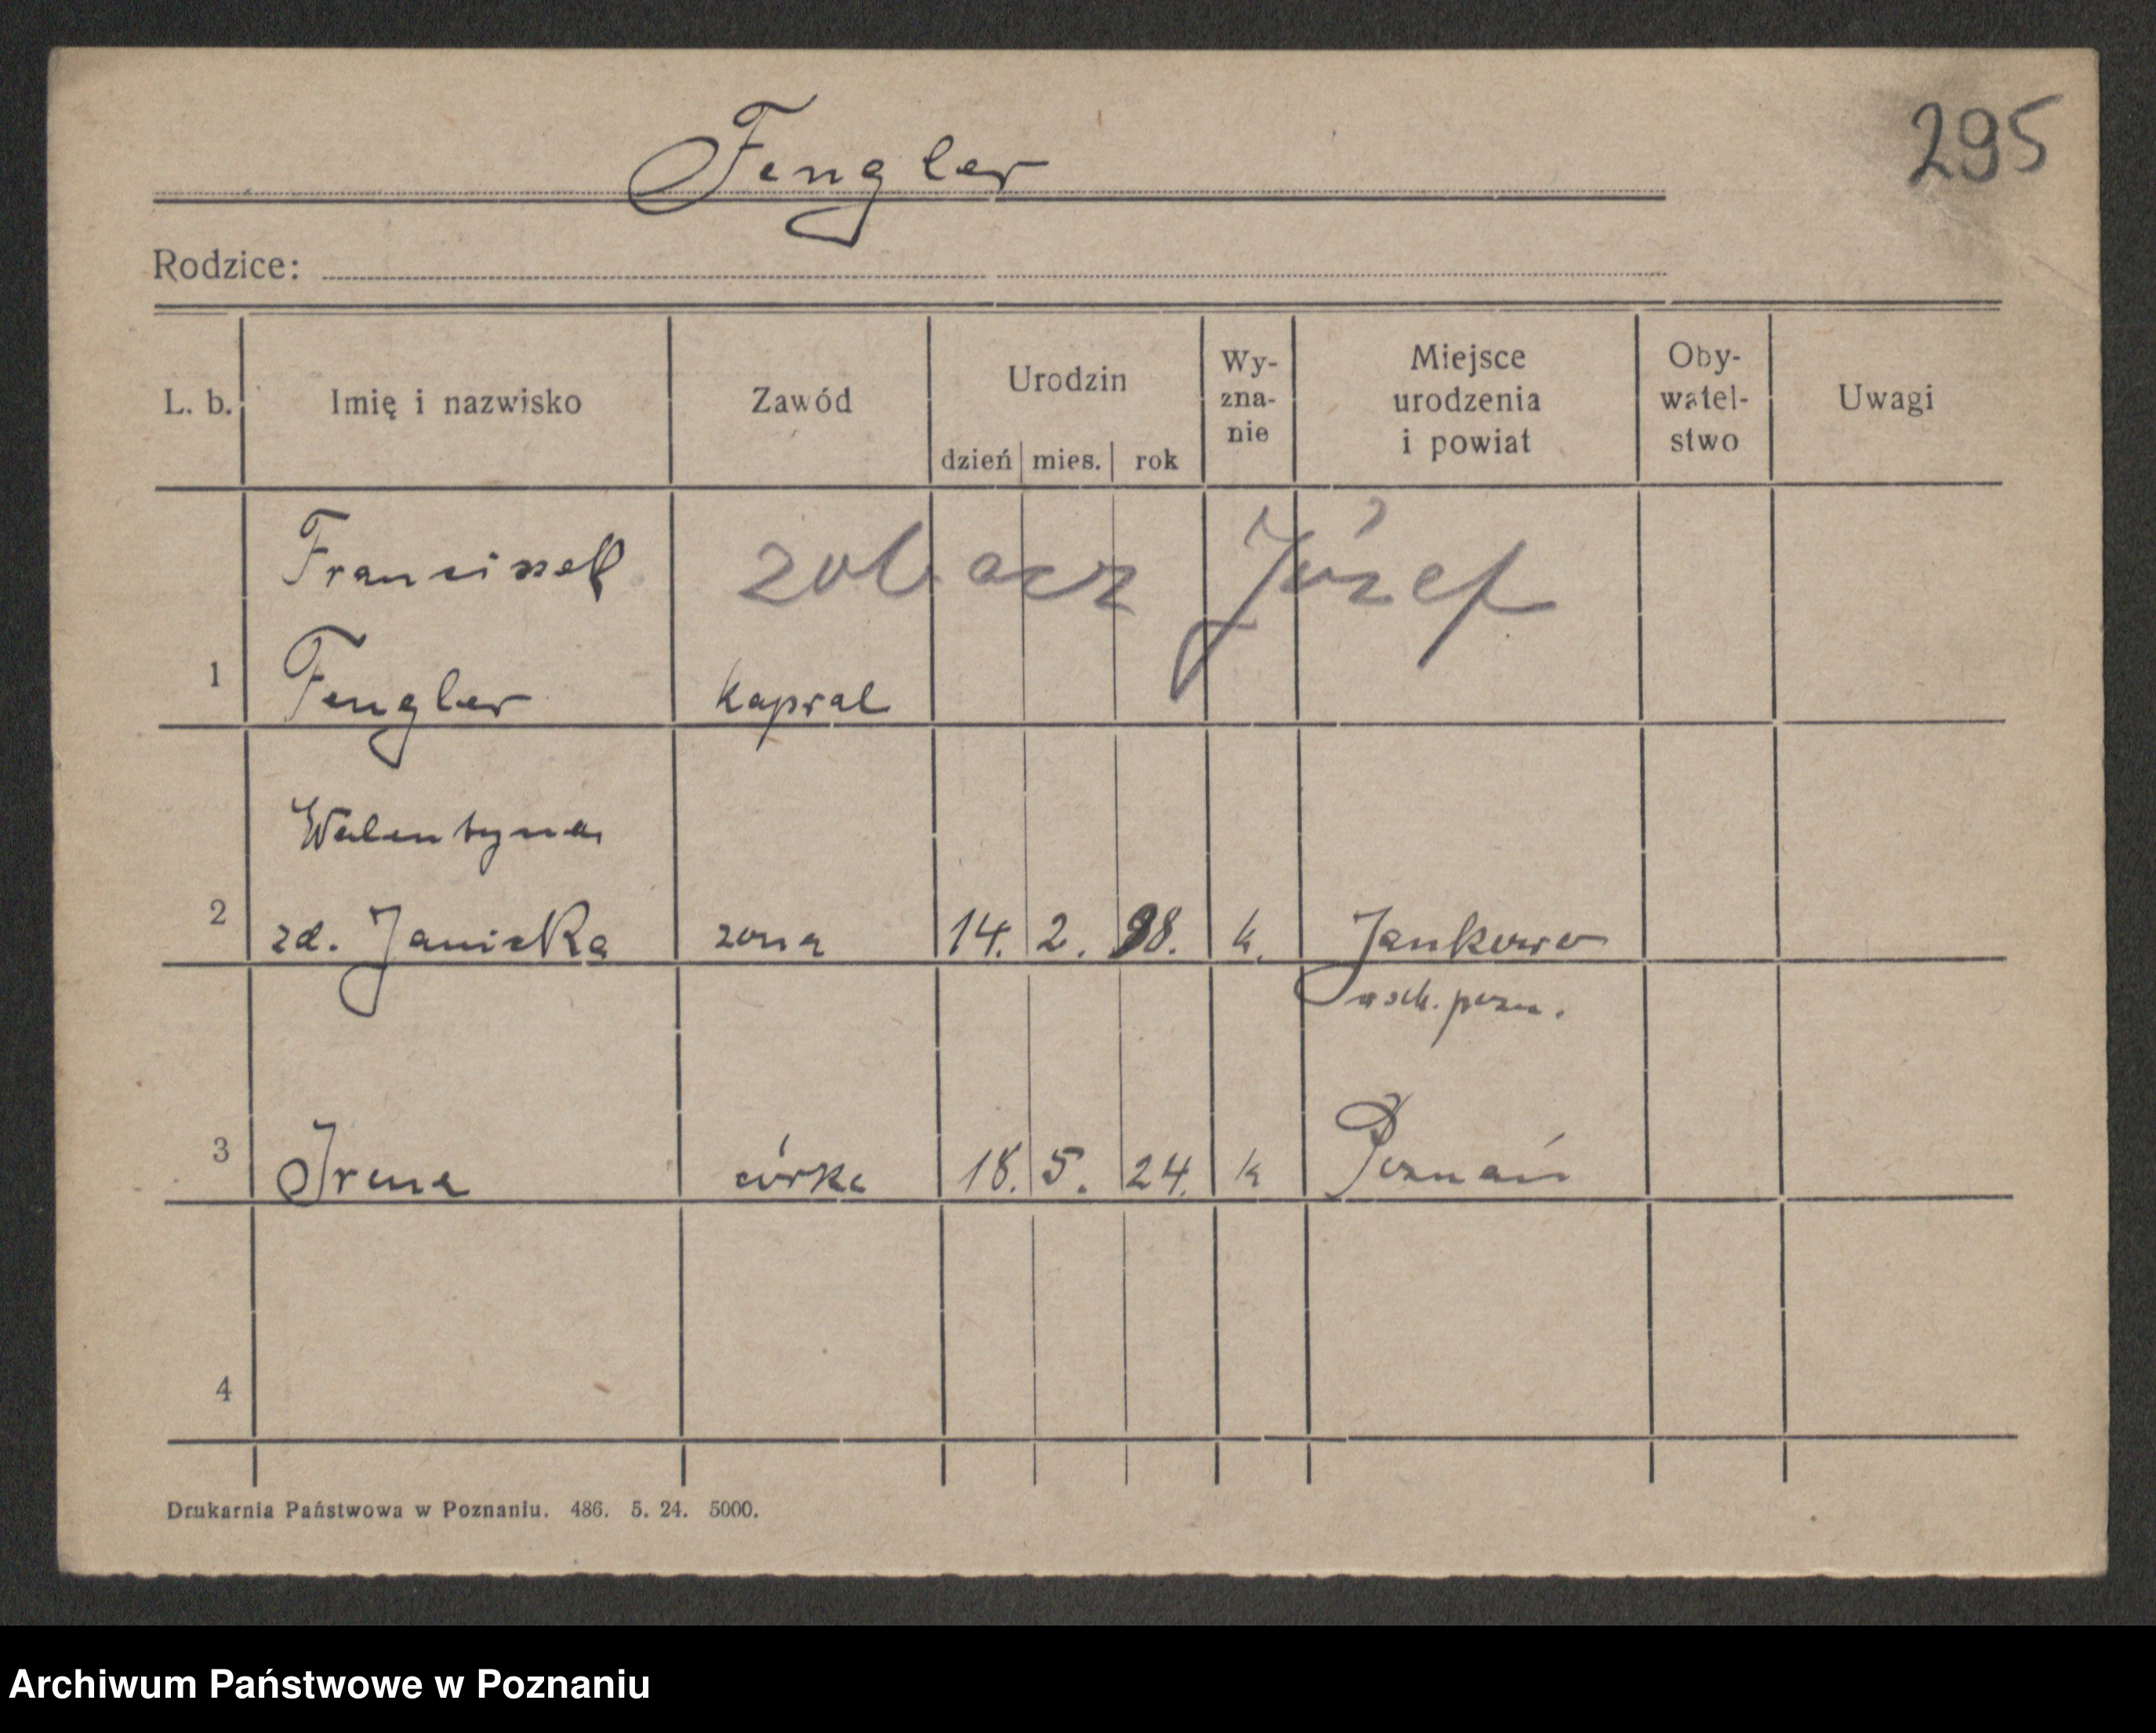 Fengler
295
Rodzice:
L. b. Imię i nazwisko Zawód Urodzin dzień mies. rok Wy-zna-nie Miejsce urodzenia i powiat Oby-watel-stwo Uwagi
Franciszek zobacz Józef
1 Fengler kapral
Walentyna
2 zd. Janicka żona 14. 2. 98. k. Jankowo
wsch. pozn.
3 Irena córka 18. 5. 24. k Poznań
4
Drukarnia Państwowa w Poznaniu. 486. 5. 24. 5000.
Archiwum Państwowe w Poznaniu